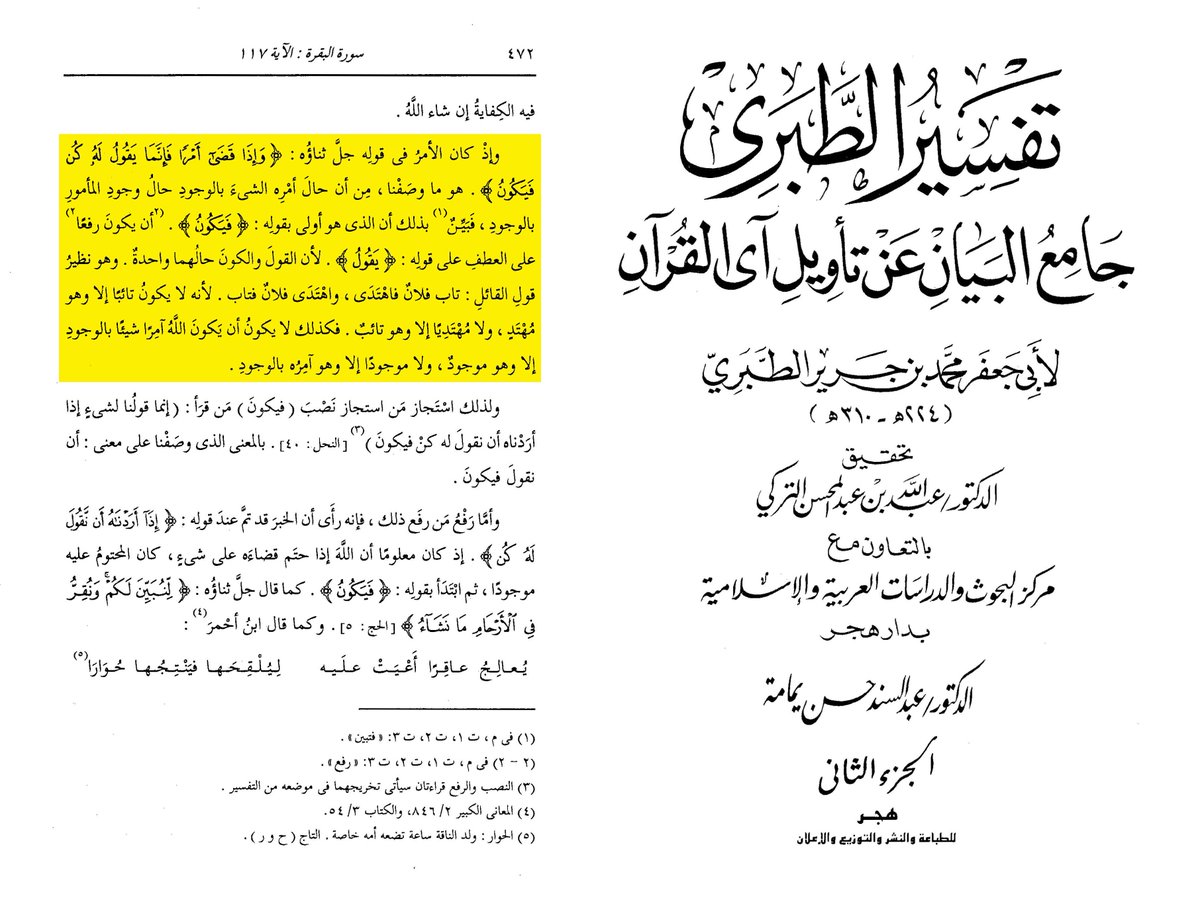 ٤٧٢
سورة البقرة : الآية ١١٧
فيه الكِفايةُ إن شاء اللَّهُ .
وإذْ كان الأمرُ فى قولِه جلَّ ثناؤُه : ﴿ وَإِذَا قَضَىٰٓ أَمْرًا فَإِنَّمَا يَقُولُ لَهُۥ كُن
فَيَكُونُ ﴾ . هو ما وصَفْنا ، مِن أن حالَ أمْرِه الشىءَ بالوجودِ حالُ وجودِ المأمورِ
بالوجودِ ، فَبَيِّنٌ(١) بذلك أن الذى هو أولى بقولِه : ﴿ فَيَكُونُ ﴾ . (٢)أن يكونَ رفعًا(٢)
على العطفِ على قولِه : ﴿ يَقُولُ ﴾ . لأن القولَ والكونَ حالُهما واحدةٌ . وهو نظيرُ
قولِ القائلِ : تاب فلانٌ فاهْتَدَى ، واهْتَدَى فلانٌ فتاب . لأنه لا يكونُ تائبًا إلا وهو
مُهْتَدٍ ، ولا مُهْتَدِيًا إلا وهو تائبٌ . فكذلك لا يكونُ أن يَكونَ اللَّهُ آمِرًا شيئًا بالوجودِ
إلا وهو موجودٌ ، ولا موجودًا إلا وهو آمِرُه بالوجودِ .
ولذلك اسْتَجاز مَن استجاز نَصْبَ ( فيكونَ ) مَن قرَأ : ( إنما قولُنا لشىءٍ إذا
أرَدْناه أن نقولَ له كنْ فيكونَ )(٣) [النحل : ٤٠] . بالمعنى الذى وصَفْنا على معنى : أن
نقولَ فيكونَ .
وأمَّا رَفْعُ مَن رفَع ذلك ، فإنه رأَى أن الخبرَ قد تمَّ عندَ قولِه : ﴿ إِذَآ أَرَدْنَٰهُ أَن نَّقُولَ
لَهُۥ كُن ﴾ . إذ كان معلومًا أن اللَّهَ إذا حتَم قضاءَه على شىءٍ ، كان المحتومُ عليه
موجودًا ، ثم ابْتَدَأ بقولِه : ﴿ فَيَكُونُ ﴾ . كما قال جلَّ ثناؤُه : ﴿ لِّنُبَيِّنَ لَكُمْ ۚ وَنُقِرُّ
فِى ٱلْأَرْحَامِ مَا نَشَآءُ ﴾ [الحج : ٥] . وكما قال ابنُ أحْمرَ(٤) :
يُعالِجُ عاقِرًا أَعْيَتْ علَيه لِيُلْقِحَها فيَنْتِجُها حُوَارَا(٥)
(١) فى م ، ت ١، ت ٢، ت ٣: « فتبين » .
(٢ - ٢) فى م ، ت ١، ت ٢، ت ٣: « رفع » .
(٣) النصب والرفع قراءتان سيأتى تخريجهما فى موضعه من التفسير .
(٤) المعانى الكبير ٢/ ٨٤٦، والكتاب ٣/ ٥٤.
(٥) الحوار : ولد الناقة ساعة تضعه أمه خاصة . التاج ( ح و ر ) .
تفسير الطبرى
جامع البيان عن تأويل آى القرآن
لأبى جعفر محمد بن جرير الطبرى
(٢٢٤هـ - ٣١٠هـ)
تحقيق
الدكتور/ عبد الله بن عبد المحسن التركي
بالتعاون مع
مركز البحوث والدراسات العربية والإسلامية
بدار هجر
الدكتور/ عبد السند حسن يمامة
الجزء الثانى
هجر
للطباعة والنشر والتوزيع والإعلان